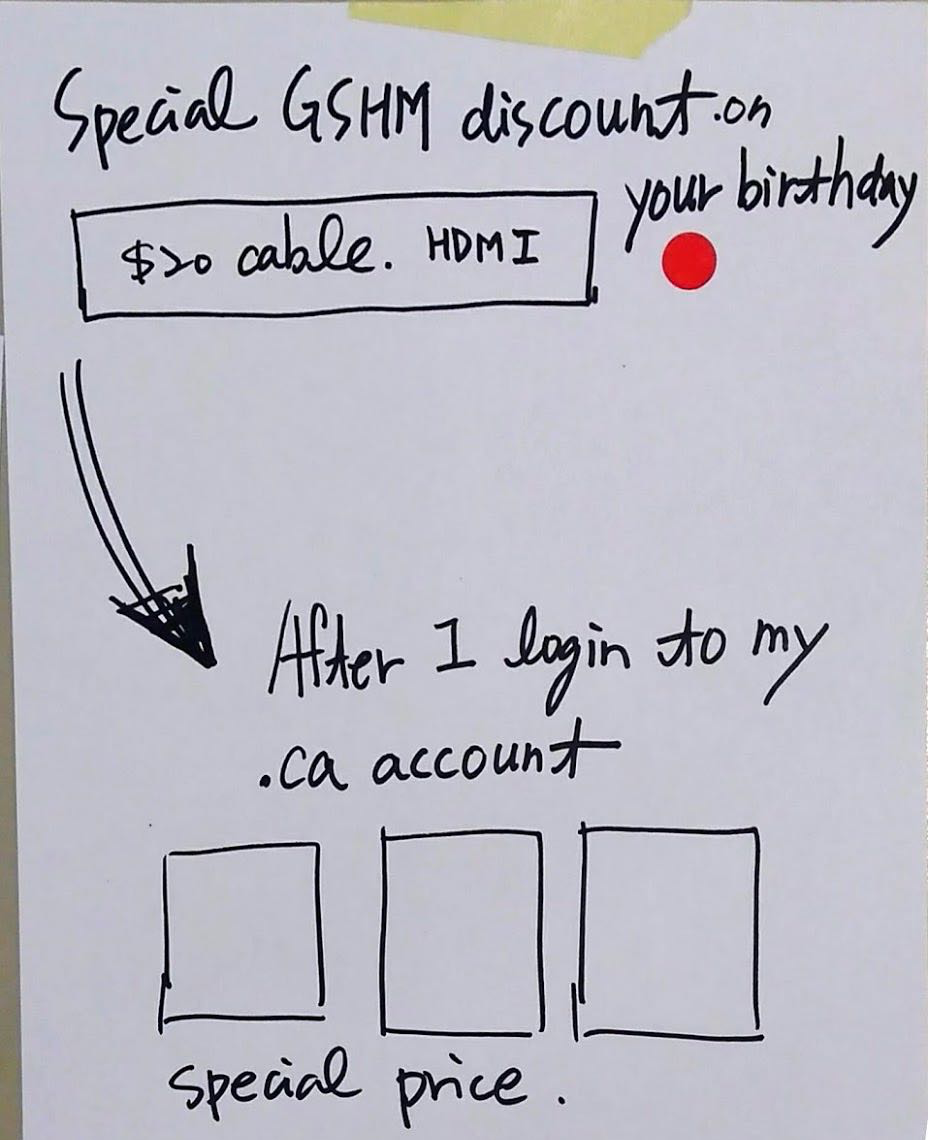 Special GSHM discount on
your birthday
$20 cable. HDMI
After I login to my
.ca account
special price.